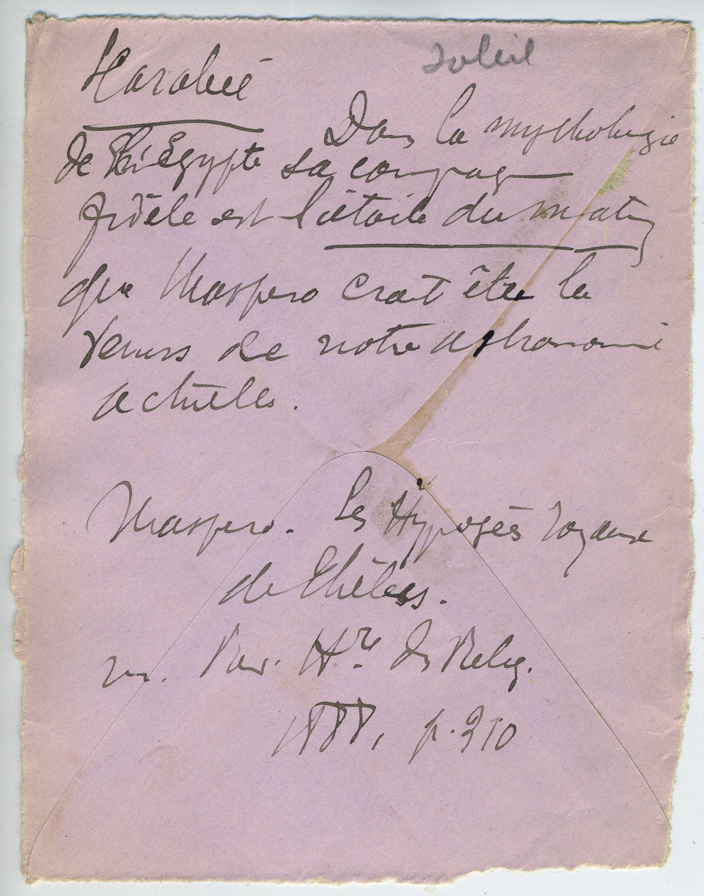 soleil
Scarabée
Dans la mythologie
de l'Égypte sa compagne
fidèle est l'étoile du matin
que Maspero croit être la
Venus de notre astronomie
actuelle.
Maspero. Les Hypogés royaux
de Thèbes.
in. Rev. Hre des Relig.
1888, p. 310